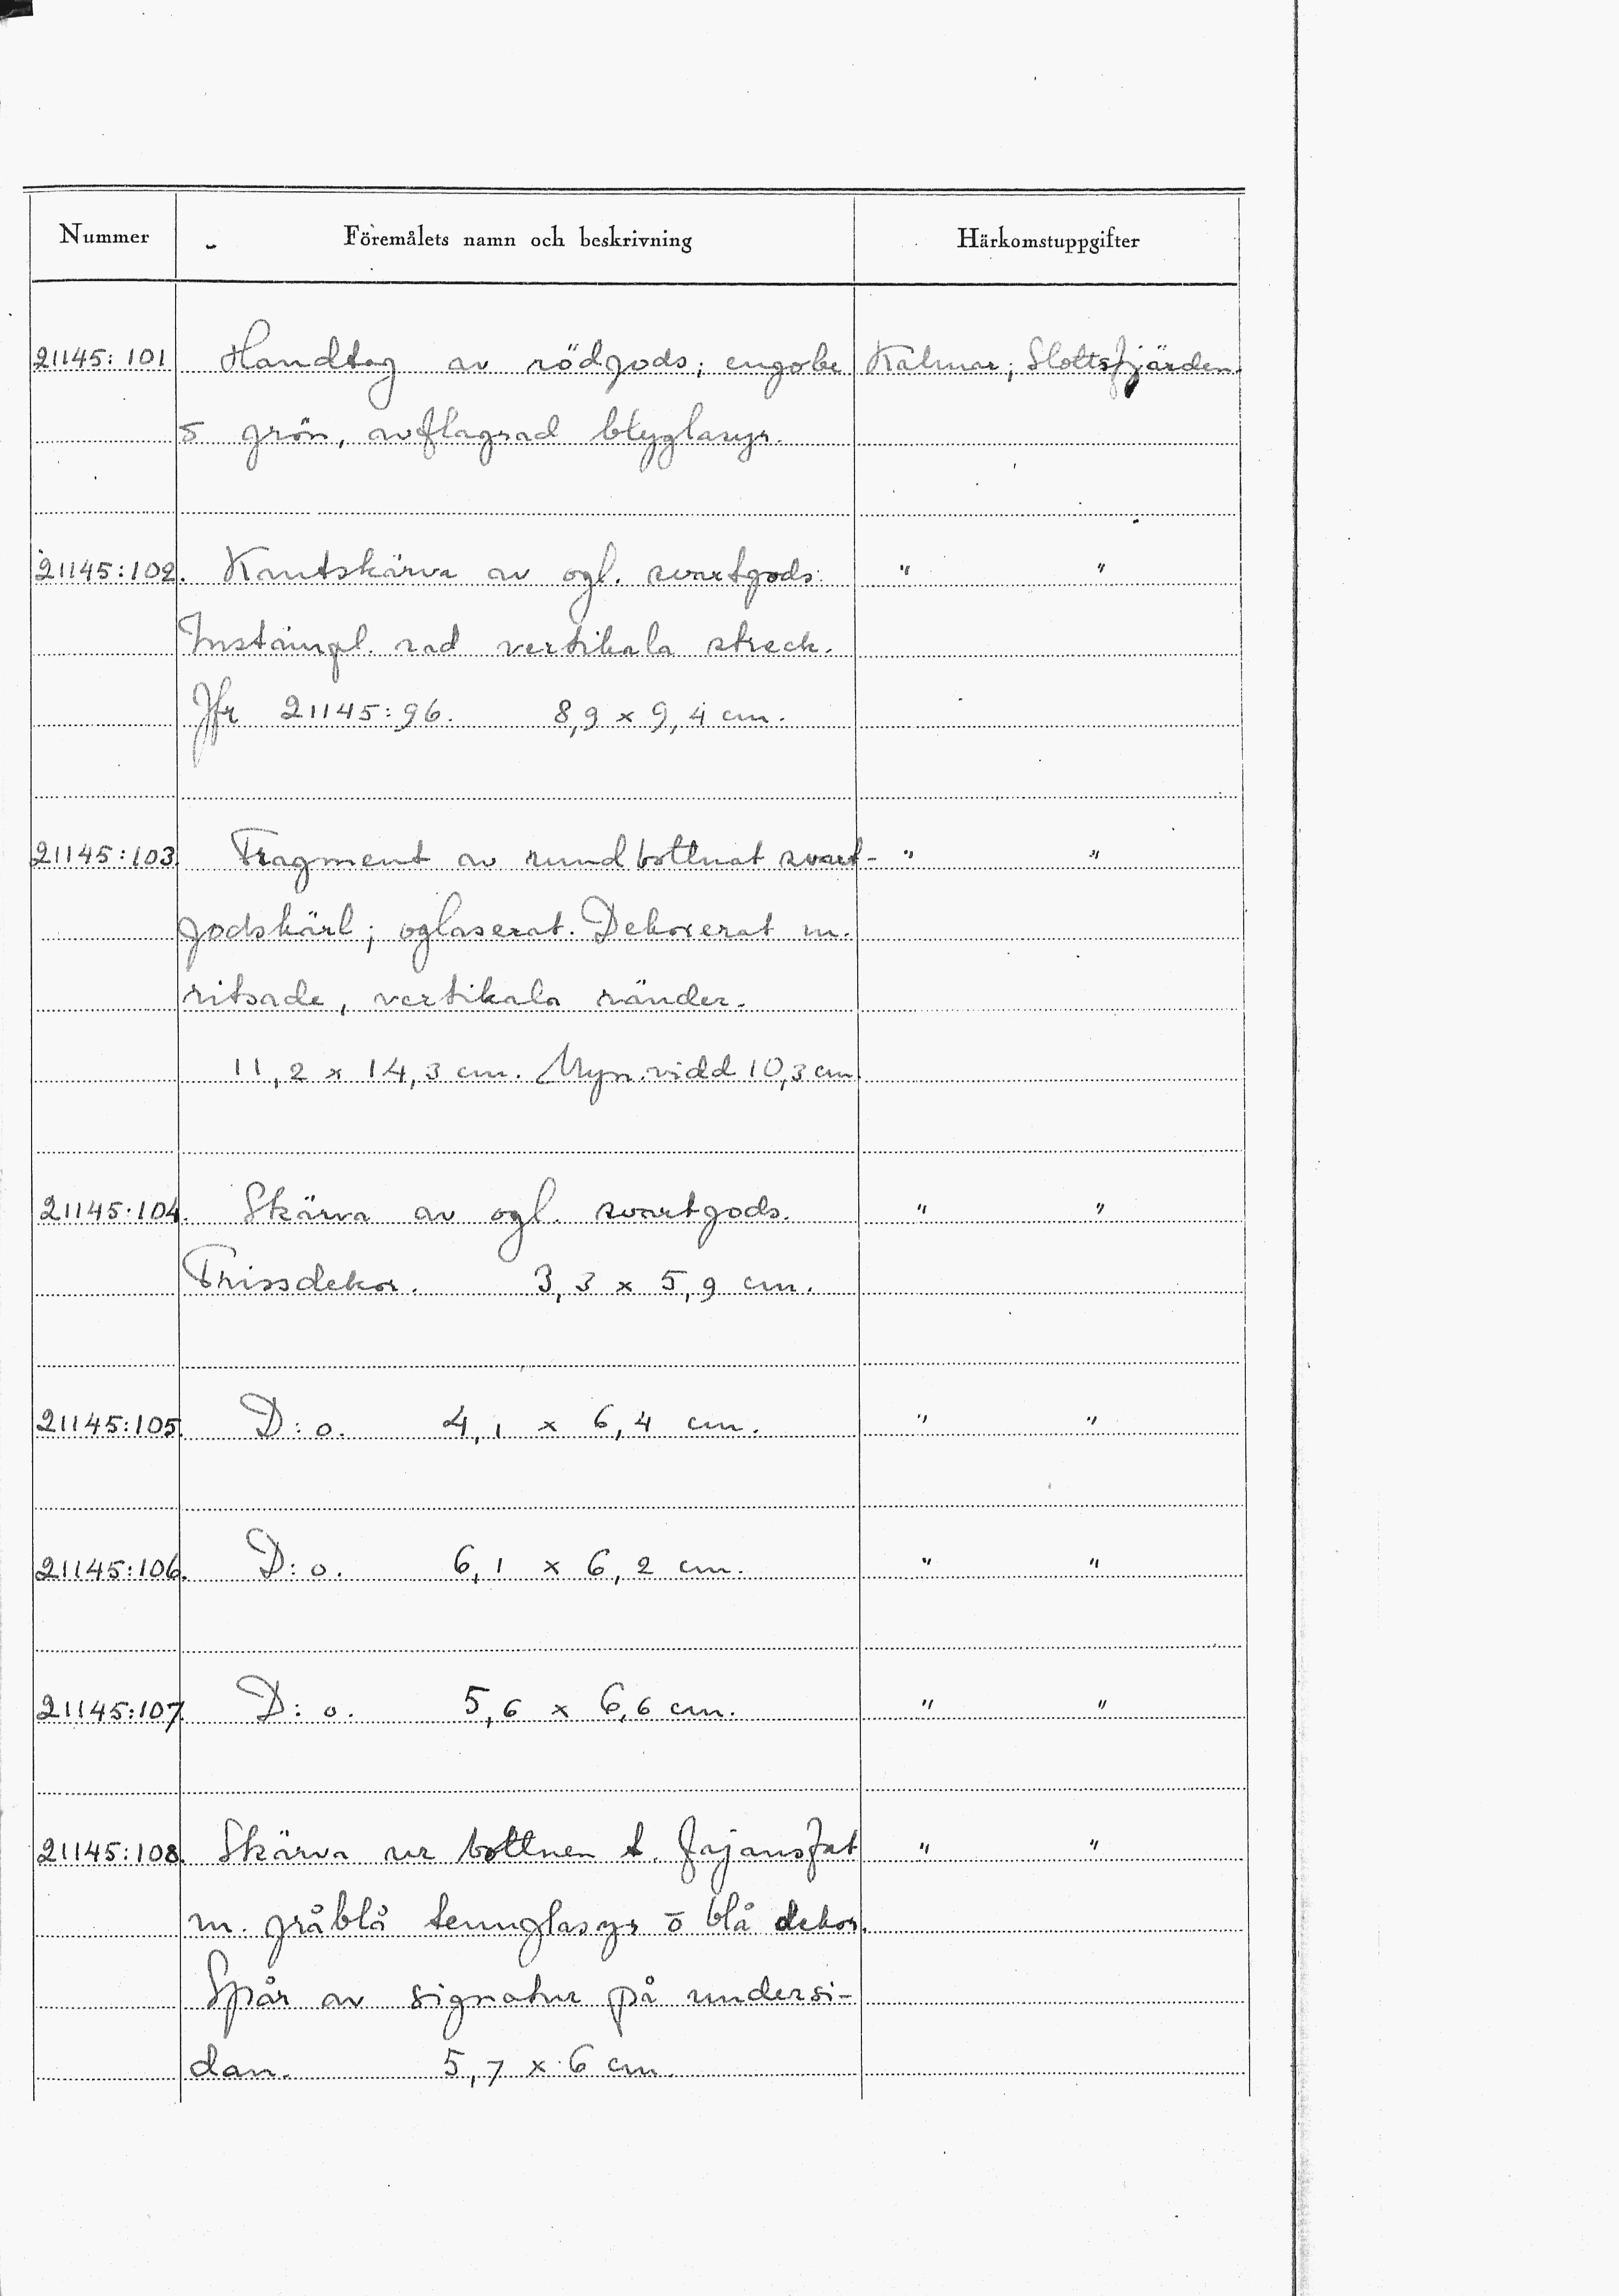 Nummer Föremålets namn och beskrivning Härkomstuppgifter
21145:101 Handtag av rödgods; engobe Kalmar; Slottsfjärden.
ō grön, avflagnad blyglasyr.
21145:102. Kantskärva av ogl. svartgods. " "
Instämpl. rad vertikala streck.
Jfr 21145:96. 8,9 x 9,4 cm.
21145:103. Fragment av rundbottnat svart- " "
godskärl; oglaserat. Dekorerat m.
ritsade, vertikala ränder.
11,2 x 14,3 cm. Myn.vidd 10,3 cm.
21145:104. Skärva av ogl. svartgods. " "
Trissdekor. 3,3 x 5,9 cm.
21145:105. D:o. 4,1 x 6,4 cm. " "
21145:106. D:o. 6,1 x 6,2 cm. " "
21145:107. D:o. 5,6 x 6,6 cm. " "
21145:108. Skärva ur bottnen t. fajansfat " "
m. gråblå tennglasyr ō blå dekor.
Spår av signatur på undersi-
dan. 5,7 x 6 cm.